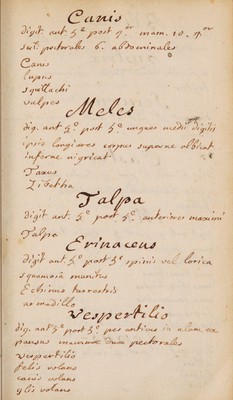 Canis
digit. ant 5. post 4or mam. 10. 4or
sci: pectorales 6. abdominales
Canis
lupus
squllachi
vulpes
Meles
dig. ant. 5. post 5. ungues medii digitis
ipsis longiores corpus superne albicat
inferne nigricat
Taxus
Zibetha
Talpa
digit ant. 5. post 5. anteriores maximi
Talpe
Erinaceus
digit ant 5. post 5. spinis vel lorica
squamosa munitus
Echinus terrestris
armadillo
Vespertilio
dig. ant 5. post 5. pes anticus in alam ex
pansus mammæ duæ pectorales
vespertilio
felis volans
canis volans
glis volans